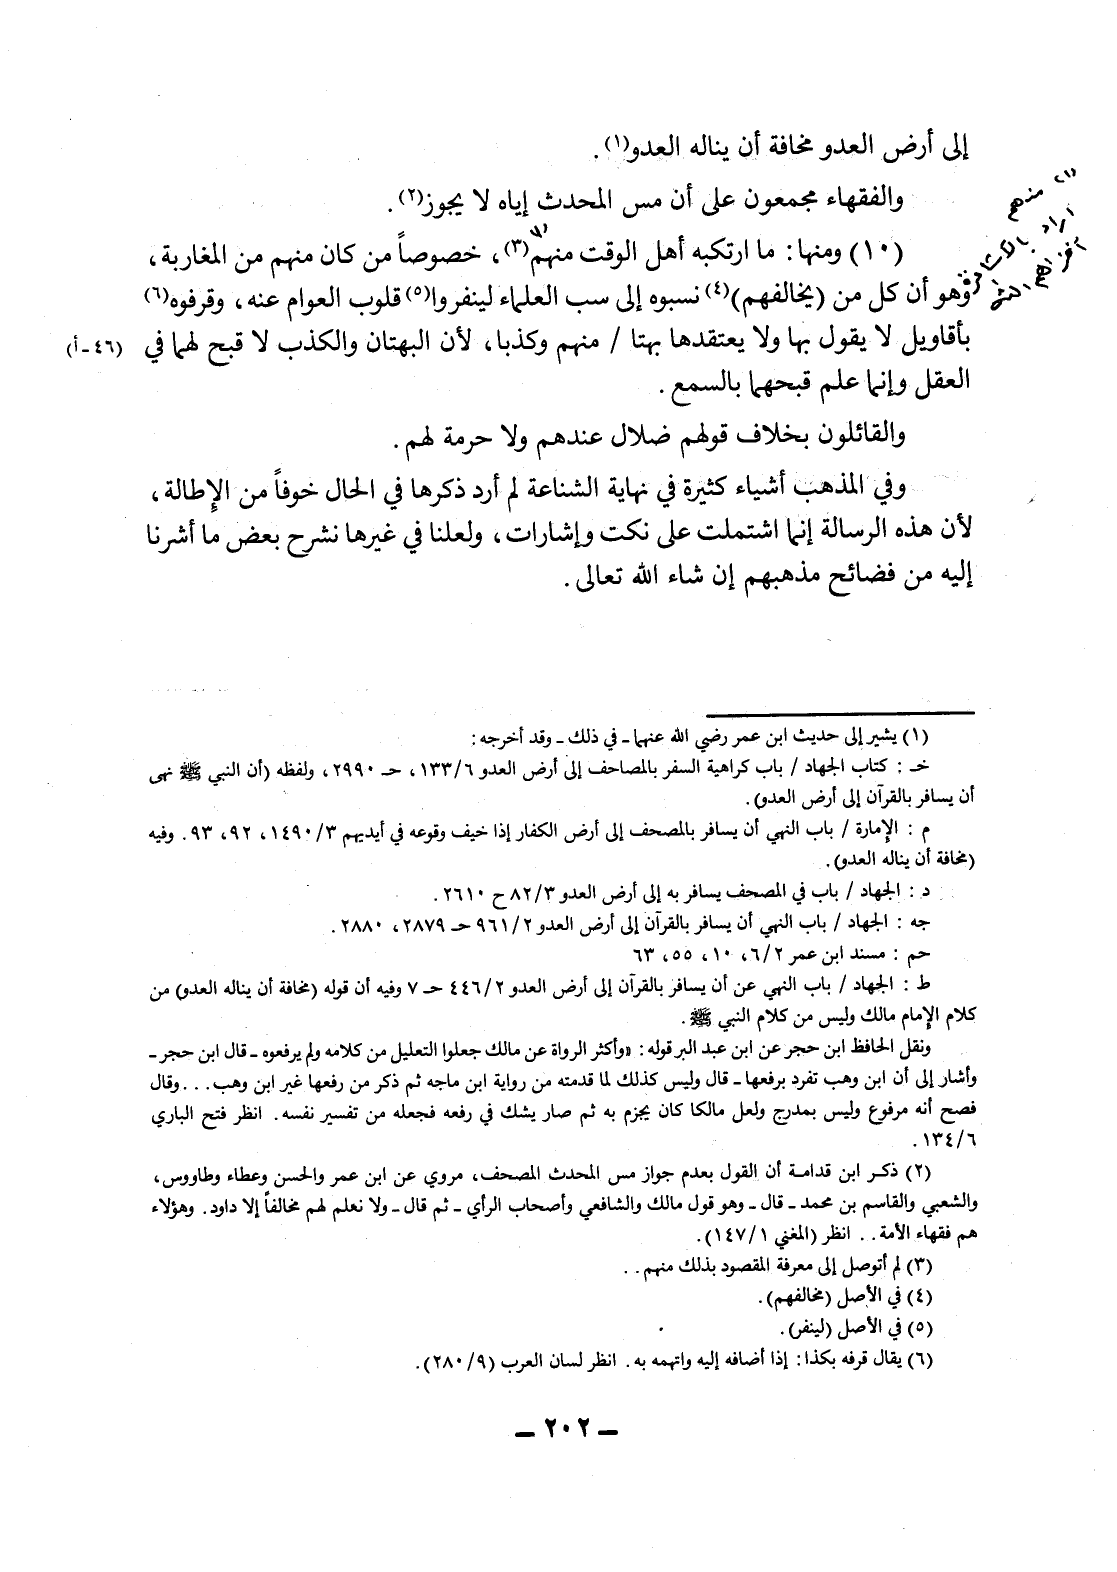 إلى أرض العدو مخافة أن يناله العدو(١).
والفقهاء مجمعون على أن مس المحدث إياه لا يجوز(٢).
(١٠) ومنها: ما ارتكبه أهل الوقت منهم(٣)، خصوصاً من كان منهم من المغاربة،
وهو أن كل من (يخالفهم)(٤) نسبوه إلى سب العلماء لينفروا(٥) قلوب العوام عنه، وقرفوه(٦)
بأقاويل لا يقول بها ولا يعتقدها بهتا / منهم وكذبا، لأن البهتان والكذب لا قبح لهما في (٤٦ - أ)
العقل وإنما علم قبحهما بالسمع.
والقائلون بخلاف قولهم ضلال عندهم ولا حرمة لهم.
وفي المذهب أشياء كثيرة في نهاية الشناعة لم أرد ذكرها في الحال خوفاً من الإطالة،
لأن هذه الرسالة إنما اشتملت على نكت وإشارات، ولعلنا في غيرها نشرح بعض ما أشرنا
إليه من فضائح مذهبهم إن شاء الله تعالى.
(١) منهم
أراد
(١) يشير إلى حديث ابن عمر رضي الله عنهما ـ في ذلك ـ وقد أخرجه:
خـ: كتاب الجهاد / باب كراهية السفر بالمصاحف إلى أرض العدو ١٣٣/٦، حـ ٢٩٩٠، ولفظه (أن النبي ﷺ نهى
أن يسافر بالقرآن إلى أرض العدو).
م: الإمارة / باب النهي أن يسافر بالمصحف إلى أرض الكفار إذا خيف وقوعه في أيديهم ١٤٩٠/٣، ٩٢، ٩٣. وفيه
(مخافة أن يناله العدو).
د: الجهاد / باب في المصحف يسافر به إلى أرض العدو ٨٢/٣ ح ٢٦١٠.
جه: الجهاد / باب النهي أن يسافر بالقرآن إلى أرض العدو ٩٦١/٢ حـ ٢٨٧٩، ٢٨٨٠.
حم: مسند ابن عمر ٦/٢، ١٠، ٥٥، ٦٣
ط: الجهاد / باب النهي عن أن يسافر بالقرآن إلى أرض العدو ٤٤٦/٢ حـ ٧ وفيه أن قوله (مخافة أن يناله العدو) من
كلام الإمام مالك وليس من كلام النبي ﷺ.
ونقل الحافظ ابن حجر عن ابن عبد البر قوله: «وأكثر الرواة عن مالك جعلوا التعليل من كلامه ولم يرفعوه ـ قال ابن حجر ـ
وأشار إلى أن ابن وهب تفرد برفعها ـ قال وليس كذلك لما قدمته من رواية ابن ماجه ثم ذكر من رفعها غير ابن وهب... وقال
فصح أنه مرفوع وليس بمدرج ولعل مالكا كان يجزم به ثم صار يشك في رفعه فجعله من تفسير نفسه. انظر فتح الباري
١٣٤/٦.
(٢) ذكر ابن قدامة أن القول بعدم جواز مس المحدث المصحف، مروي عن ابن عمر والحسن وعطاء وطاووس،
والشعبي والقاسم بن محمد ـ قال ـ وهو قول مالك والشافعي وأصحاب الرأي ـ ثم قال ـ ولا نعلم لهم مخالفاً إلا داود. وهؤلاء
هم فقهاء الأمة.. انظر (المغني ١٤٧/١).
(٣) لم أتوصل إلى معرفة المقصود بذلك منهم..
(٤) في الأصل (مخالفهم).
(٥) في الأصل (لينفر).
(٦) يقال قرفه بكذا: إذا أضافه إليه واتهمه به. انظر لسان العرب (٢٨٠/٩).
ـ ٢٠٢ ـ